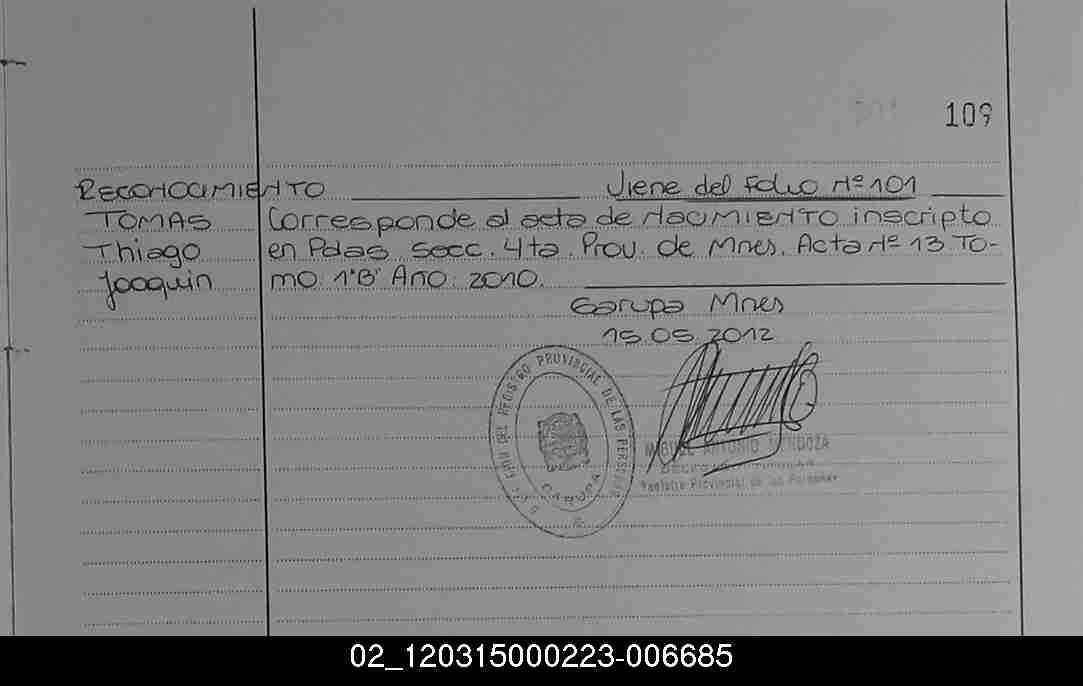 109
RECONOCIMIENTO Viene del Folio Nº 101
TOMAS Corresponde al acta de NACIMIENTO inscripto
Thiago en Pdas. Secc. 4ta. Prov. de Mnes. Acta Nº 13 To-
Joaquin mo: 1"B" Año: 2010.
Garupa Mnes
15.05.2012
DEL REGISTRO PROVINCIAL DE LAS PERSONAS
GARUPA
MIGUEL ANTONIO MENDOZA
Registro Provincial de las Personas
02_120315000223-006685